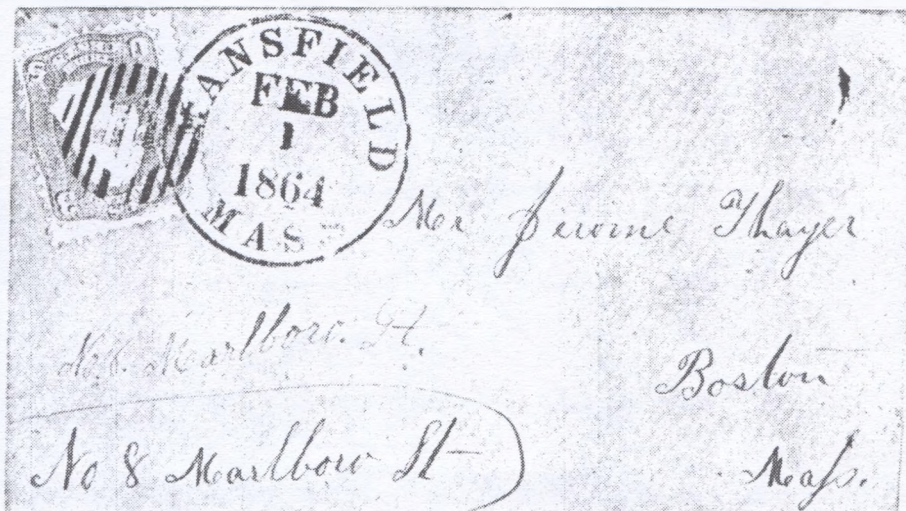 MANSFIELD
FEB
1
1864
MASS
Mr Jerome Thayer
No. 8. Marlboro. St.
Boston
No 8 Marlboro St
Mass.